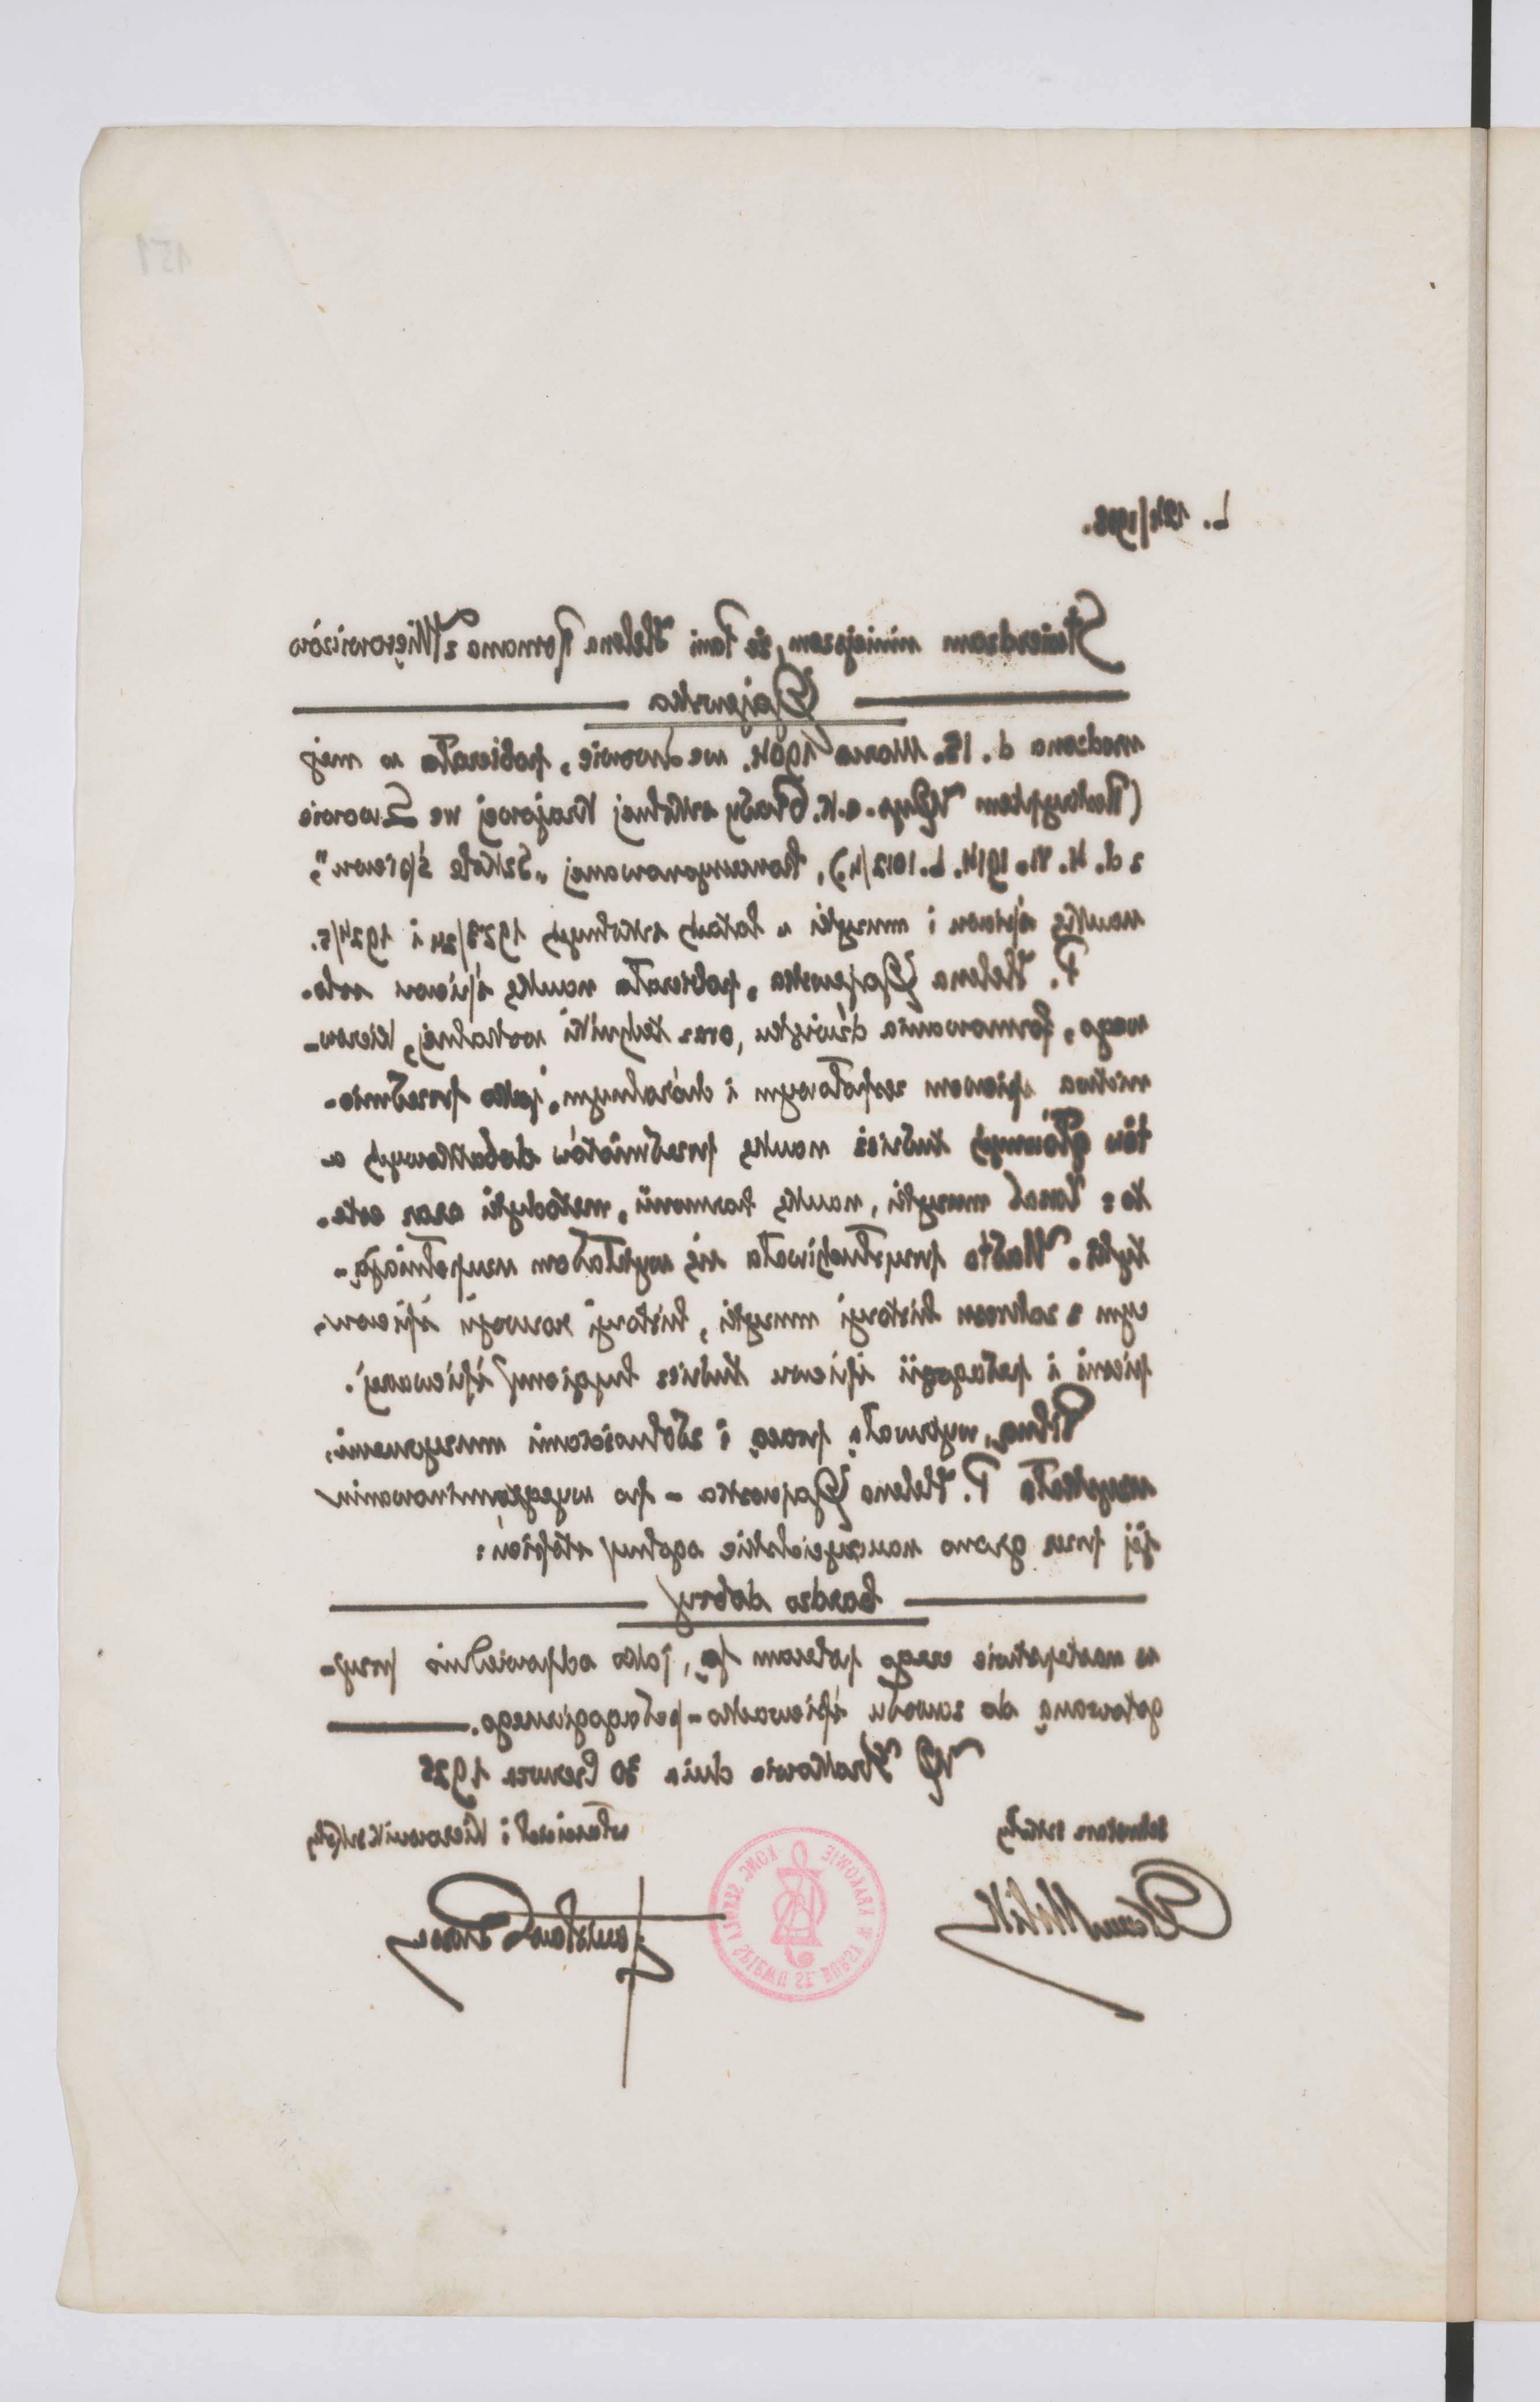 151
L. 124/1925.
Stwierdzam niniejszem, że Pani Helena Romana z Mięsowiczów
Gajewska
urodzona d. 15. Marca 1904. we Lwowie, pobierała w mej
(Reskryptem Wys. c.k. Rady szkolnej Krajowej we Lwowie
z d. 4. VI. 1914. L. 1012/4), koncesyonowanej „Szkole śpiewu”,
naukę śpiewu i muzyki w latach szkolnych 1923/24 i 1924/5.
P. Helena Gajewska, pobierała naukę śpiewu solo-
wego, formowania dźwięku, oraz techniki wokalnej, kierow-
nictwa śpiewem zespołowym i chóralnym, jako przedmio-
tów głównych tudzież naukę przedmiotów dodatkowych a
to: zasad muzyki, naukę harmonii, metodyki oraz este-
tyki. Nadto przysłuchiwała się wykładom uzupełniają-
cym z zakresu historyi muzyki, historyi rozwoju śpiewu,
pieśni i pedagogii śpiewu tudzież hygieny śpiewaczej.
Pilną, wytrwałą pracą i zdolnościami muzycznemi,
uzyskała P. Helena Gajewska - po wyegzaminowaniu
jej przez grono nauczycielskie ogólny stopień:
bardzo dobry
w następstwie czego polecam ją, jako odpowiednio przy-
gotowaną do zawodu śpiewacko-pedagogicznego.
W Krakowie dnia 30 Czerwca 1925
sekretarz szkoły
właściciel i kierownik szkoły
KONC. SZKOŁA ŚPIEWU ST. BURSY W KRAKOWIE
Stanisław Bursa